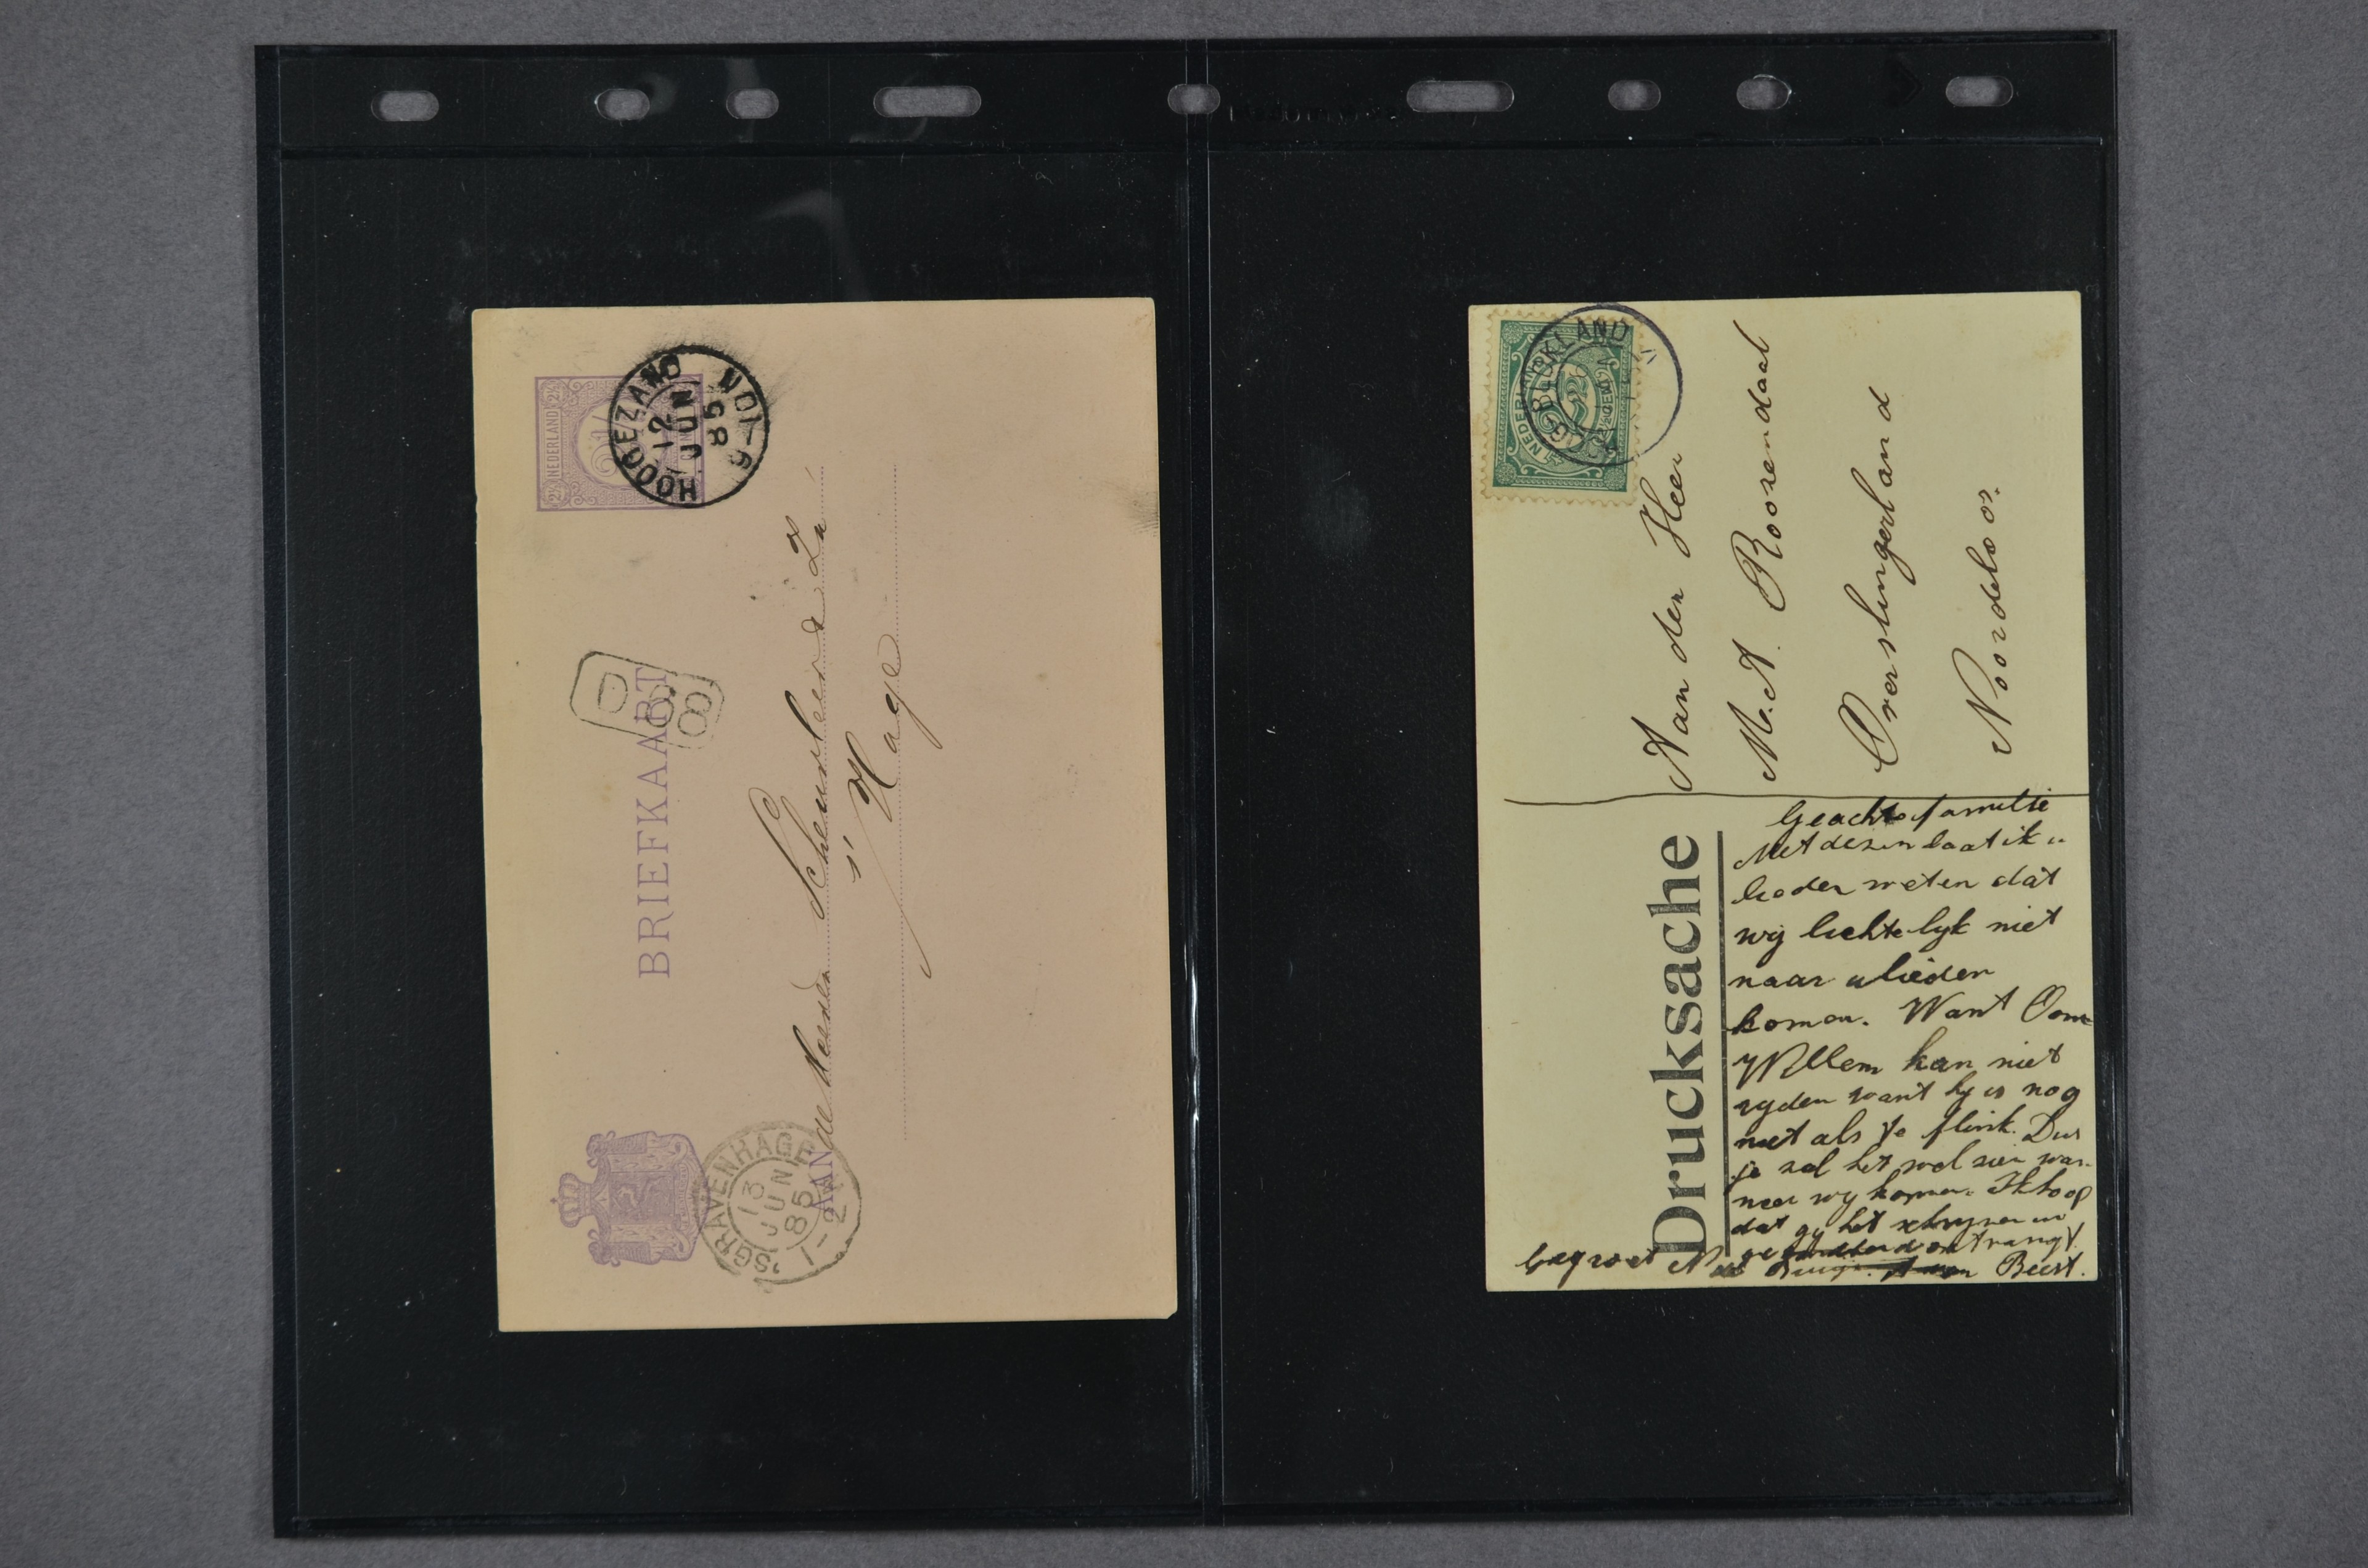 NEDERLAND
HOOGEZAND
12
JUN
85
9-10N
D
68
8
BRIEFKAART
AAN de Heeren Scheurleer & Zn
s' Hage
'SGRAVENHAGE
13
JUN
85
1-2
NEDERLAND
BLOKLAND
Aan den Heer
M. A. Roosendaal
Overslingerland
Noordeloos.
Drucksache
Geachte familie
Met dezen laat ik u
lieden weten dat
wij lichtelyk niet
naar ulieden
komen. Want Oom
Willem kan niet
ryden want hy is nog
niet als te flink. Dus
je zal het wel zien wan-
neer wy komen. Ik hoop
dat gy het schryven in
ontvangt.
Gegroet
Beest.